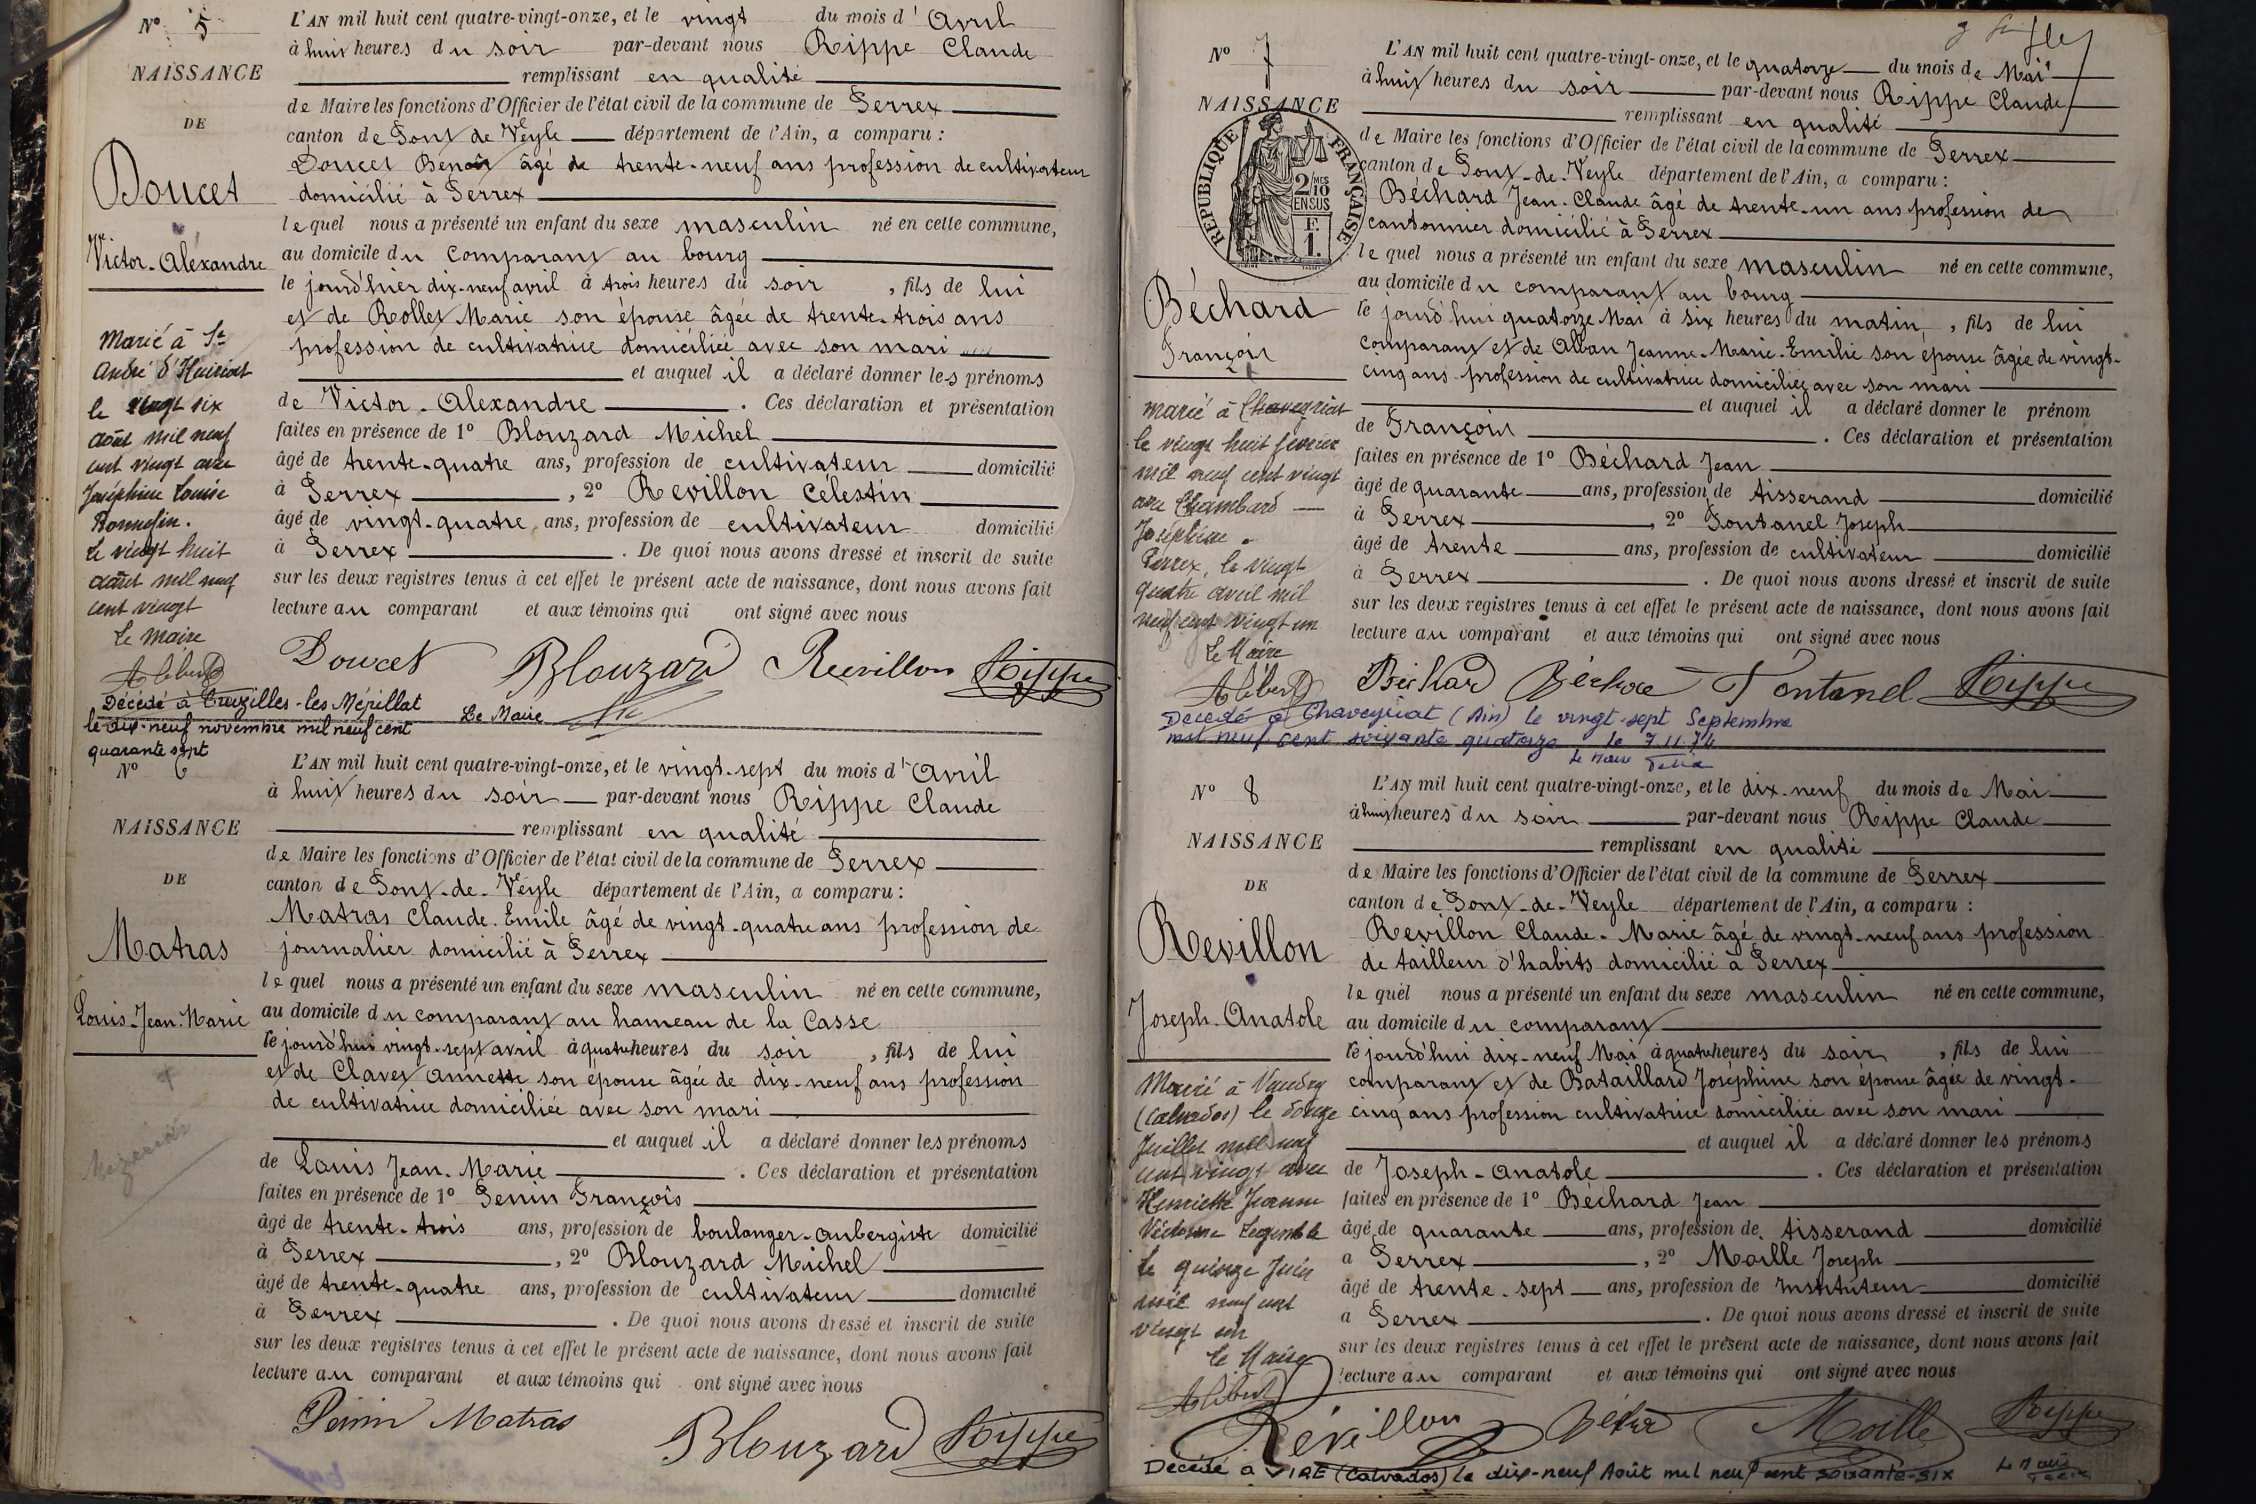 N° 5
NAISSANCE
DE
Doucet
Victor-Alexandre
Marié à St
André d'Huiriat
le vingt six
août mil neuf
cent vingt avec
Joséphine Louise
Le vingt huit
août mil neuf
cent vingt
Le Maire
Alibert
L'AN mil huit cent quatre-vingt-onze, et le vingt du mois d'Avril
à huit heures du soir par-devant nous Rippe Claude
remplissant en qualité
de Maire les fonctions d'Officier de l'état civil de la commune de Perrex
canton de Pont de Veyle département de l'Ain, a comparu :
Doucet Benoît âgé de trente-neuf ans profession de cultivateur
domicilié à Perrex
lequel nous a présenté un enfant du sexe masculin né en cette commune,
au domicile du comparant au bourg
le jourd'hier dix-neuf avril à trois heures du soir, fils de lui
et de Rollet Marie son épouse âgée de trente-trois ans
profession de cultivatrice domiciliée avec son mari
et auquel il a déclaré donner les prénoms
de Victor-Alexandre. Ces déclaration et présentation
faites en présence de 1° Blouzard Michel
âgé de trente-quatre ans, profession de cultivateur domicilié
à Perrex, 2° Revillon Célestin
âgé de vingt-quatre ans, profession de cultivateur domicilié
à Perrex. De quoi nous avons dressé et inscrit de suite
sur les deux registres tenus à cet effet le présent acte de naissance, dont nous avons fait
lecture au comparant et aux témoins qui ont signé avec nous
Doucet Blouzard Revillon Rippe
Décédé à Cruzilles-les Mépillat Le Maire
le dix-neuf novembre mil neuf cent
quarante sept
N° 6
NAISSANCE
DE
Matras
Louis-Jean-Marie
Mezeriat
L'AN mil huit cent quatre-vingt-onze, et le vingt-sept du mois d'Avril
à huit heures du soir par-devant nous Rippe Claude
remplissant en qualité
de Maire les fonctions d'Officier de l'état civil de la commune de Perrex
canton de Pont-de-Veyle département de l'Ain, a comparu :
Matras Claude-Emile âgé de vingt-quatre ans profession de
journalier domicilié à Perrex
lequel nous a présenté un enfant du sexe masculin né en cette commune,
au domicile du comparant au hameau de la Casse
le jourd'hui vingt-sept avril à quatre heures du soir, fils de lui
et de Clavet Annette son épouse âgée de dix-neuf ans profession
de cultivatrice domiciliée avec son mari
et auquel il a déclaré donner les prénoms
de Louis Jean-Marie. Ces déclaration et présentation
faites en présence de 1° Penin François
âgé de trente-trois ans, profession de boulanger-aubergiste domicilié
à Perrex, 2° Blouzard Michel
âgé de trente-quatre ans, profession de cultivateur domicilié
à Perrex. De quoi nous avons dressé et inscrit de suite
sur les deux registres tenus à cet effet le présent acte de naissance, dont nous avons fait
lecture au comparant et aux témoins qui ont signé avec nous
Penin Matras Blouzard Rippe
N° 7
NAISSANCE
RÉPUBLIQUE FRANÇAISE
2/10 MES
EN SUS
F.
1.
Béchard
François
Marié à Chaveyriat
le vingt huit février
mil neuf cent vingt
avec Chambard
Joséphine.
Perrex, le vingt
quatre avril mil
neuf cent vingt un
Le Maire
Alibert
L'AN mil huit cent quatre-vingt-onze, et le quatorze du mois de Mai
à huit heures du soir par-devant nous Rippe Claude
remplissant en qualité
de Maire les fonctions d'Officier de l'état civil de la commune de Perrex
canton de Pont-de-Veyle département de l'Ain, a comparu :
Béchard Jean-Claude âgé de trente-un ans profession de
cantonnier domicilié à Perrex
lequel nous a présenté un enfant du sexe masculin né en cette commune,
au domicile du comparant au bourg
le jourd'hui quatorze Mai à six heures du matin, fils de lui
comparant et de Alban Jeanne-Marie-Emilie son épouse âgée de vingt-
cinq ans profession de cultivatrice domiciliée avec son mari
et auquel il a déclaré donner le prénom
de François. Ces déclaration et présentation
faites en présence de 1° Béchard Jean
âgé de quarante ans, profession de tisserand domicilié
à Perrex, 2° Fontanel Joseph
âgé de trente ans, profession de cultivateur domicilié
à Perrex. De quoi nous avons dressé et inscrit de suite
sur les deux registres tenus à cet effet le présent acte de naissance, dont nous avons fait
lecture au comparant et aux témoins qui ont signé avec nous
Béchard Béchard Fontanel Rippe
Décédé à Chaveyriat (Ain) le vingt-sept Septembre
mil neuf cent soixante quatorze le 7.11.74
Le Maire
N° 8
NAISSANCE
DE
Revillon
Joseph-Anatole
Marié à Vaudry
(Calvados) le douze
Juillet mil neuf
cent vingt avec
Henriette Jeanne
Le quinze Juin
mil neuf cent
vingt un
Le Maire
Alibert
L'AN mil huit cent quatre-vingt-onze, et le dix-neuf du mois de Mai
à huit heures du soir par-devant nous Rippe Claude
remplissant en qualité
de Maire les fonctions d'Officier de l'état civil de la commune de Perrex
canton de Pont-de-Veyle département de l'Ain, a comparu :
Revillon Claude-Marie âgé de vingt-neuf ans profession
de tailleur d'habits domicilié à Perrex
lequel nous a présenté un enfant du sexe masculin né en cette commune,
au domicile du comparant
le jourd'hui dix-neuf Mai à quatre heures du soir, fils de lui
comparant et de Bataillard Joséphine son épouse âgée de vingt-
cinq ans profession cultivatrice domiciliée avec son mari
et auquel il a déclaré donner les prénoms
de Joseph-Anatole. Ces déclaration et présentation
faites en présence de 1° Béchard Jean
âgé de quarante ans, profession de tisserand domicilié
à Perrex, 2° Moille Joseph
âgé de trente-sept ans, profession de Instituteur domicilié
à Perrex. De quoi nous avons dressé et inscrit de suite
sur les deux registres tenus à cet effet le présent acte de naissance, dont nous avons fait
lecture au comparant et aux témoins qui ont signé avec nous
Révillon Moille Rippe
Décédé à VIRE (Calvados) le dix-neuf Août mil neuf cent soixante-six Le Maire